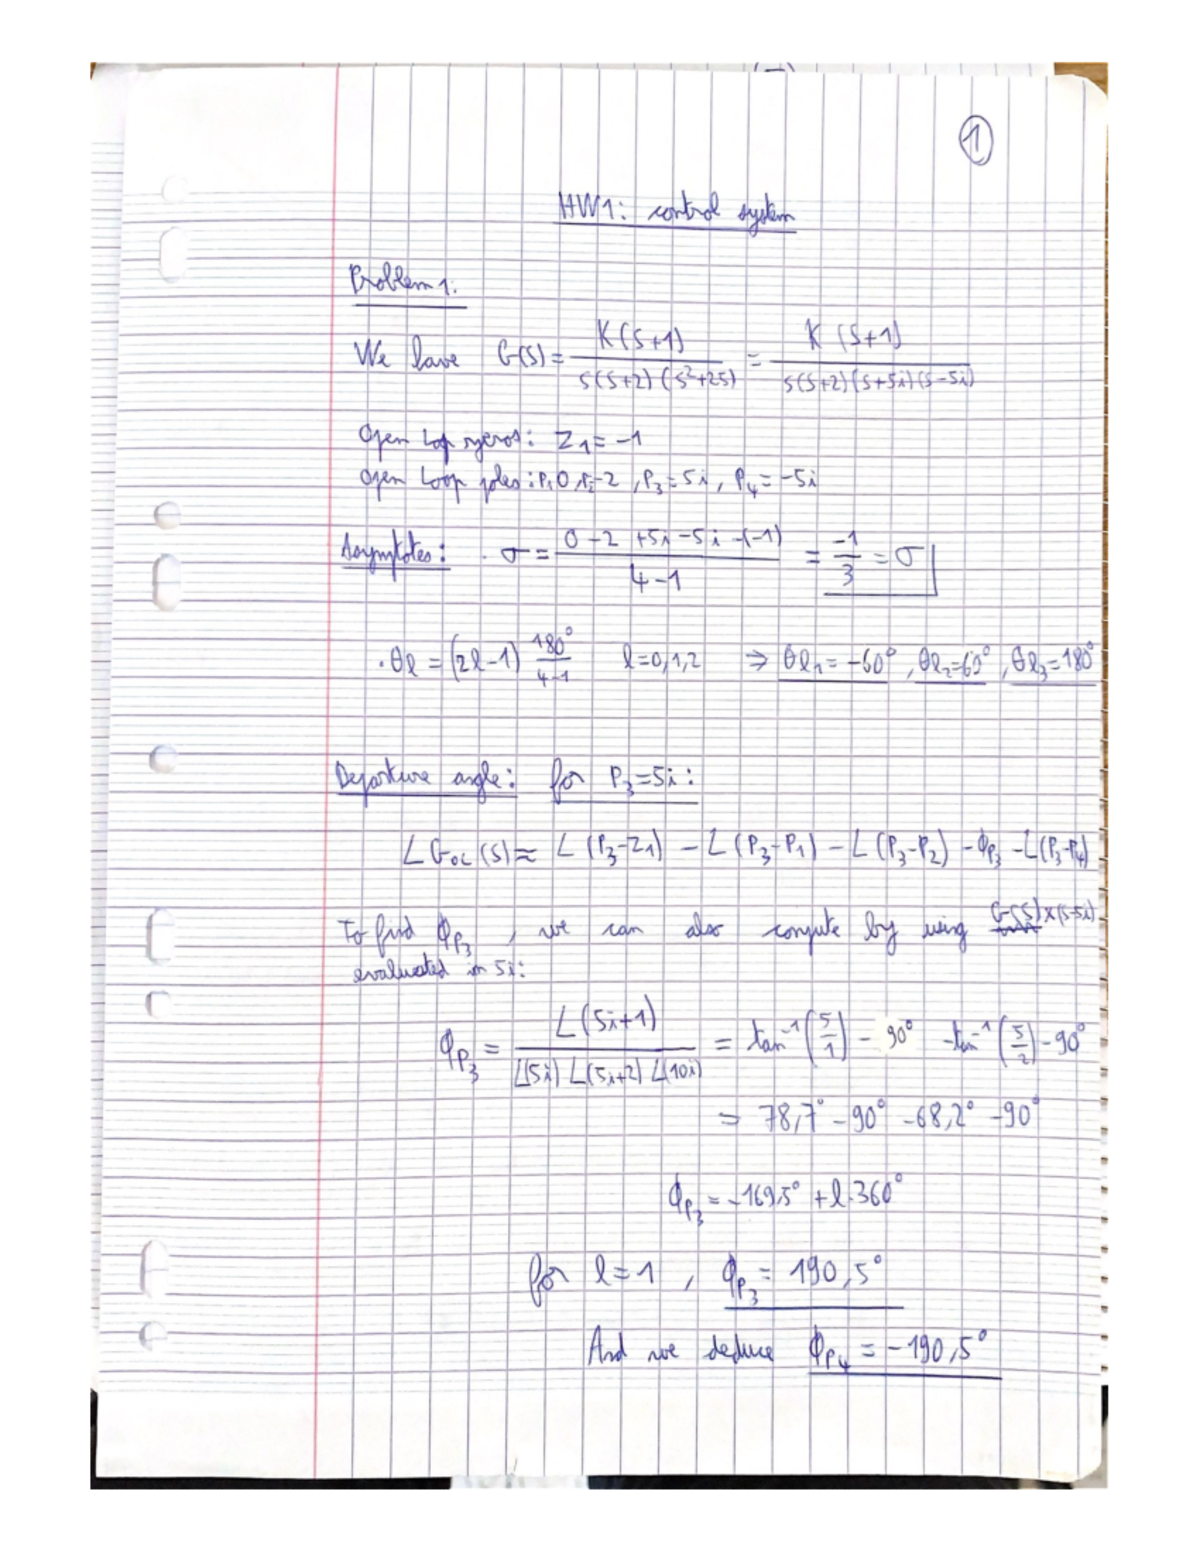 1
HW1: control system
Problem 1:
We have G(s) = K(s+1) / s(s+2)(s²+25) = K(s+1) / s(s+2)(s+5i)(s-5i)
Open loop zeros: Z1 = -1
Open loop poles: P1 0, P2 -2, P3 = 5i, P4 = -5i
Asymptotes: · σ = 0-2+5i-5i-(-1) / 4-1 = -1/3 = σ
· θl = (2l-1) 180°/4-1 l=0,1,2 ⇒ θl1 = -60°, θl2=60°, θl3=180°
Departure angle: for P3=5i:
∠GOL(s) ≈ ∠(P3-Z1) - ∠(P3-P1) - ∠(P3-P2) - ΦP3 - ∠(P3-P4)
To find ΦP3, we can also compute by using G(s)×(s-5i)
evaluated in 5i:
ΦP3 = ∠(5i+1) / ∠(5i) ∠(5i+2) ∠(10i) = tan⁻¹(5/1) - 90° - tan⁻¹(5/2) - 90°
= 78,7° - 90° - 68,2° - 90°
ΦP3 = -169,5° + l·360°
for l=1, ΦP3 = 190,5°
And we deduce ΦP4 = -190,5°